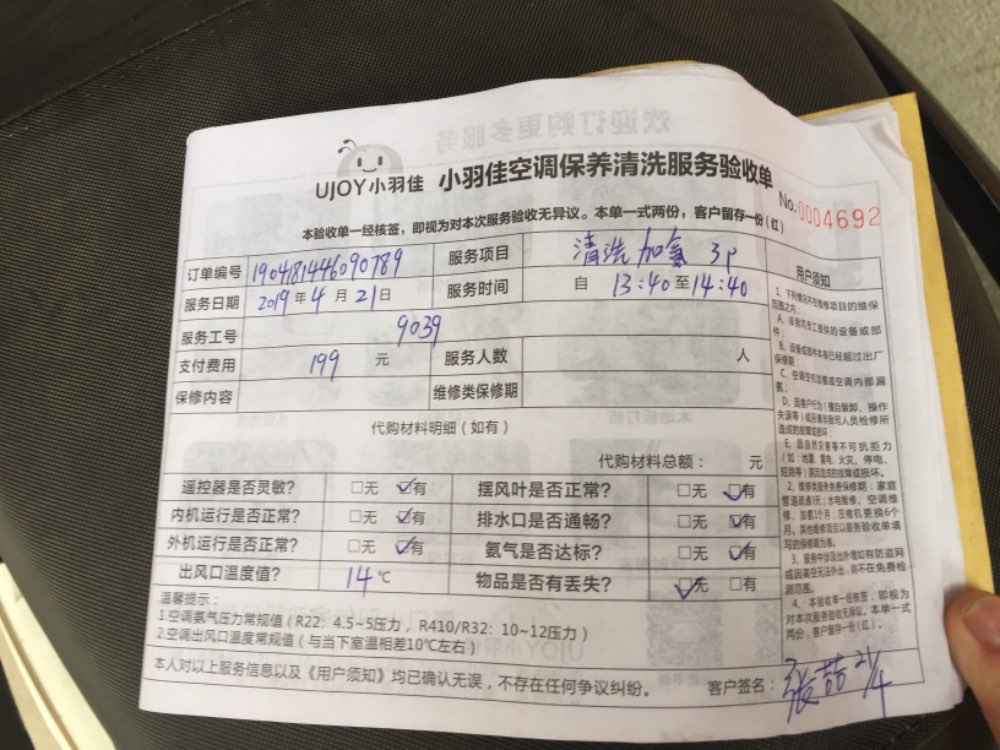 UJOY小羽佳 小羽佳空调保养清洗服务验收单
No.0004692
本验收单一经核签，即视为对本次服务验收无异议。本单一式两份，客户留存一份(红)
订单编号 1904181446090789 服务项目 清洗 加氨 3P
服务日期 2019年4月21日 服务时间 自 13:40至14:40
服务工号 9039
支付费用 199 元 服务人数 人
保修内容 维修类保修期
代购材料明细（如有）
代购材料总额： 元
遥控器是否灵敏? □无 ☑有 摆风叶是否正常? □无 ☑有
内机运行是否正常? □无 ☑有 排水口是否通畅? □无 ☑有
外机运行是否正常? □无 ☑有 氨气是否达标? □无 ☑有
出风口温度值? 14℃ 物品是否有丢失? ☑无 □有
温馨提示：
1.空调氨气压力常规值（R22：4.5~5压力，R410/R32：10~12压力）
2.空调出风口温度常规值（与当下室温相差10℃左右）
本人对以上服务信息以及《用户须知》均已确认无误，不存在任何争议纠纷。 客户签名： 21/4
用户须知
1、下列情况不在维修项目的维保
范围之内：
A、非我司员工提供的设备或部
件；
B、设备或部件本身已经超过出厂
保修期；
C、空调空机加氨或空调内部漏
氨；
D、因客户行为（擅自装卸、操作
失误等）或另请非我司人员检修所
造成的故障或损坏；
E、因自然灾害等不可抗拒力
（如：地震、雷电、火灾、停电、
短路等）原因造成的故障或损坏。
2、维修类服务免费保修期：家庭
管道疏通3天；水电维修、空调维
修、加氨1个月；压缩机更换6个
月。其他维修项目以服务验收单填
写的保修期为准。
3、服务中涉及出外墙如有防盗网
或因高空无法外出，则不在免费检
测范围。
4、本验收单一经核签，即视为
对本次服务验收无异议。本单一式
两份，客户留存一份（红）。